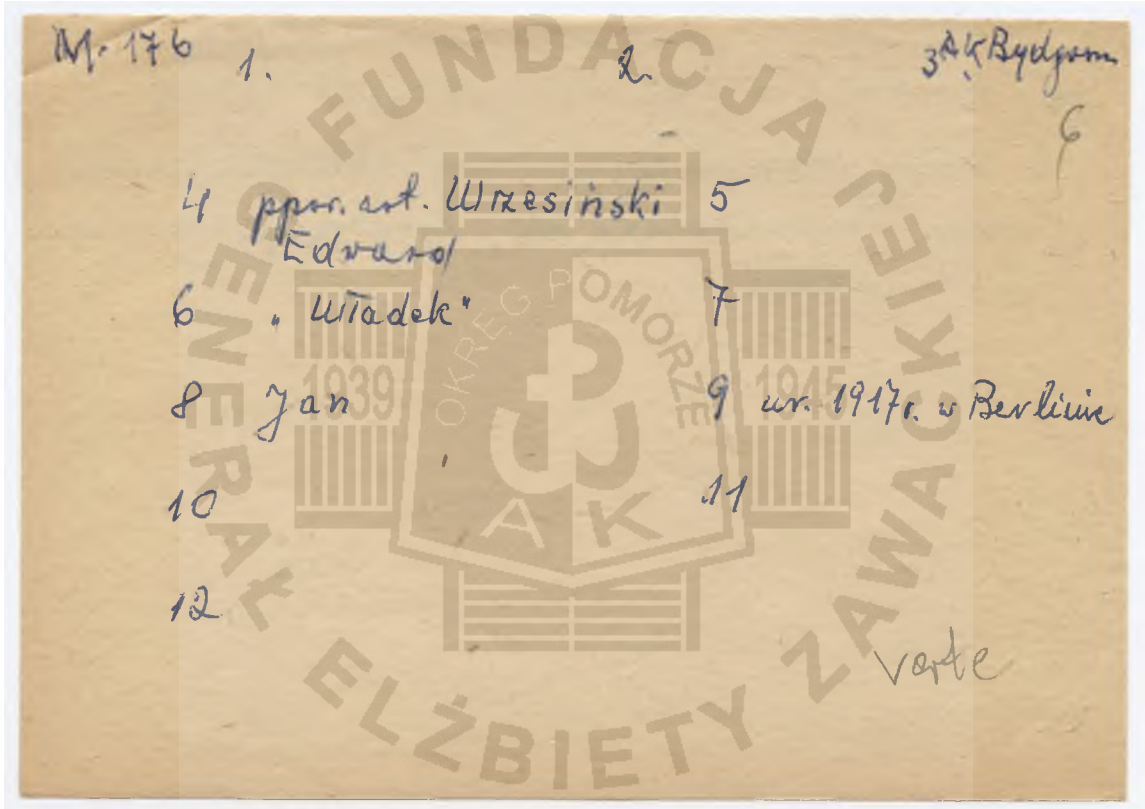 M. 176 1. 2. 3 AK Bydgom
6
4 ppor. art. Wrzesiński 5
Edward
6 "Władek" 7
8 Jan 9 ur. 1917r. w Berlinie
10 11
12
verte
FUNDACJA
GENERAŁ ELŻBIETY ZAWACKIEJ
OKRĘG POMORZE
1939 1945
AK